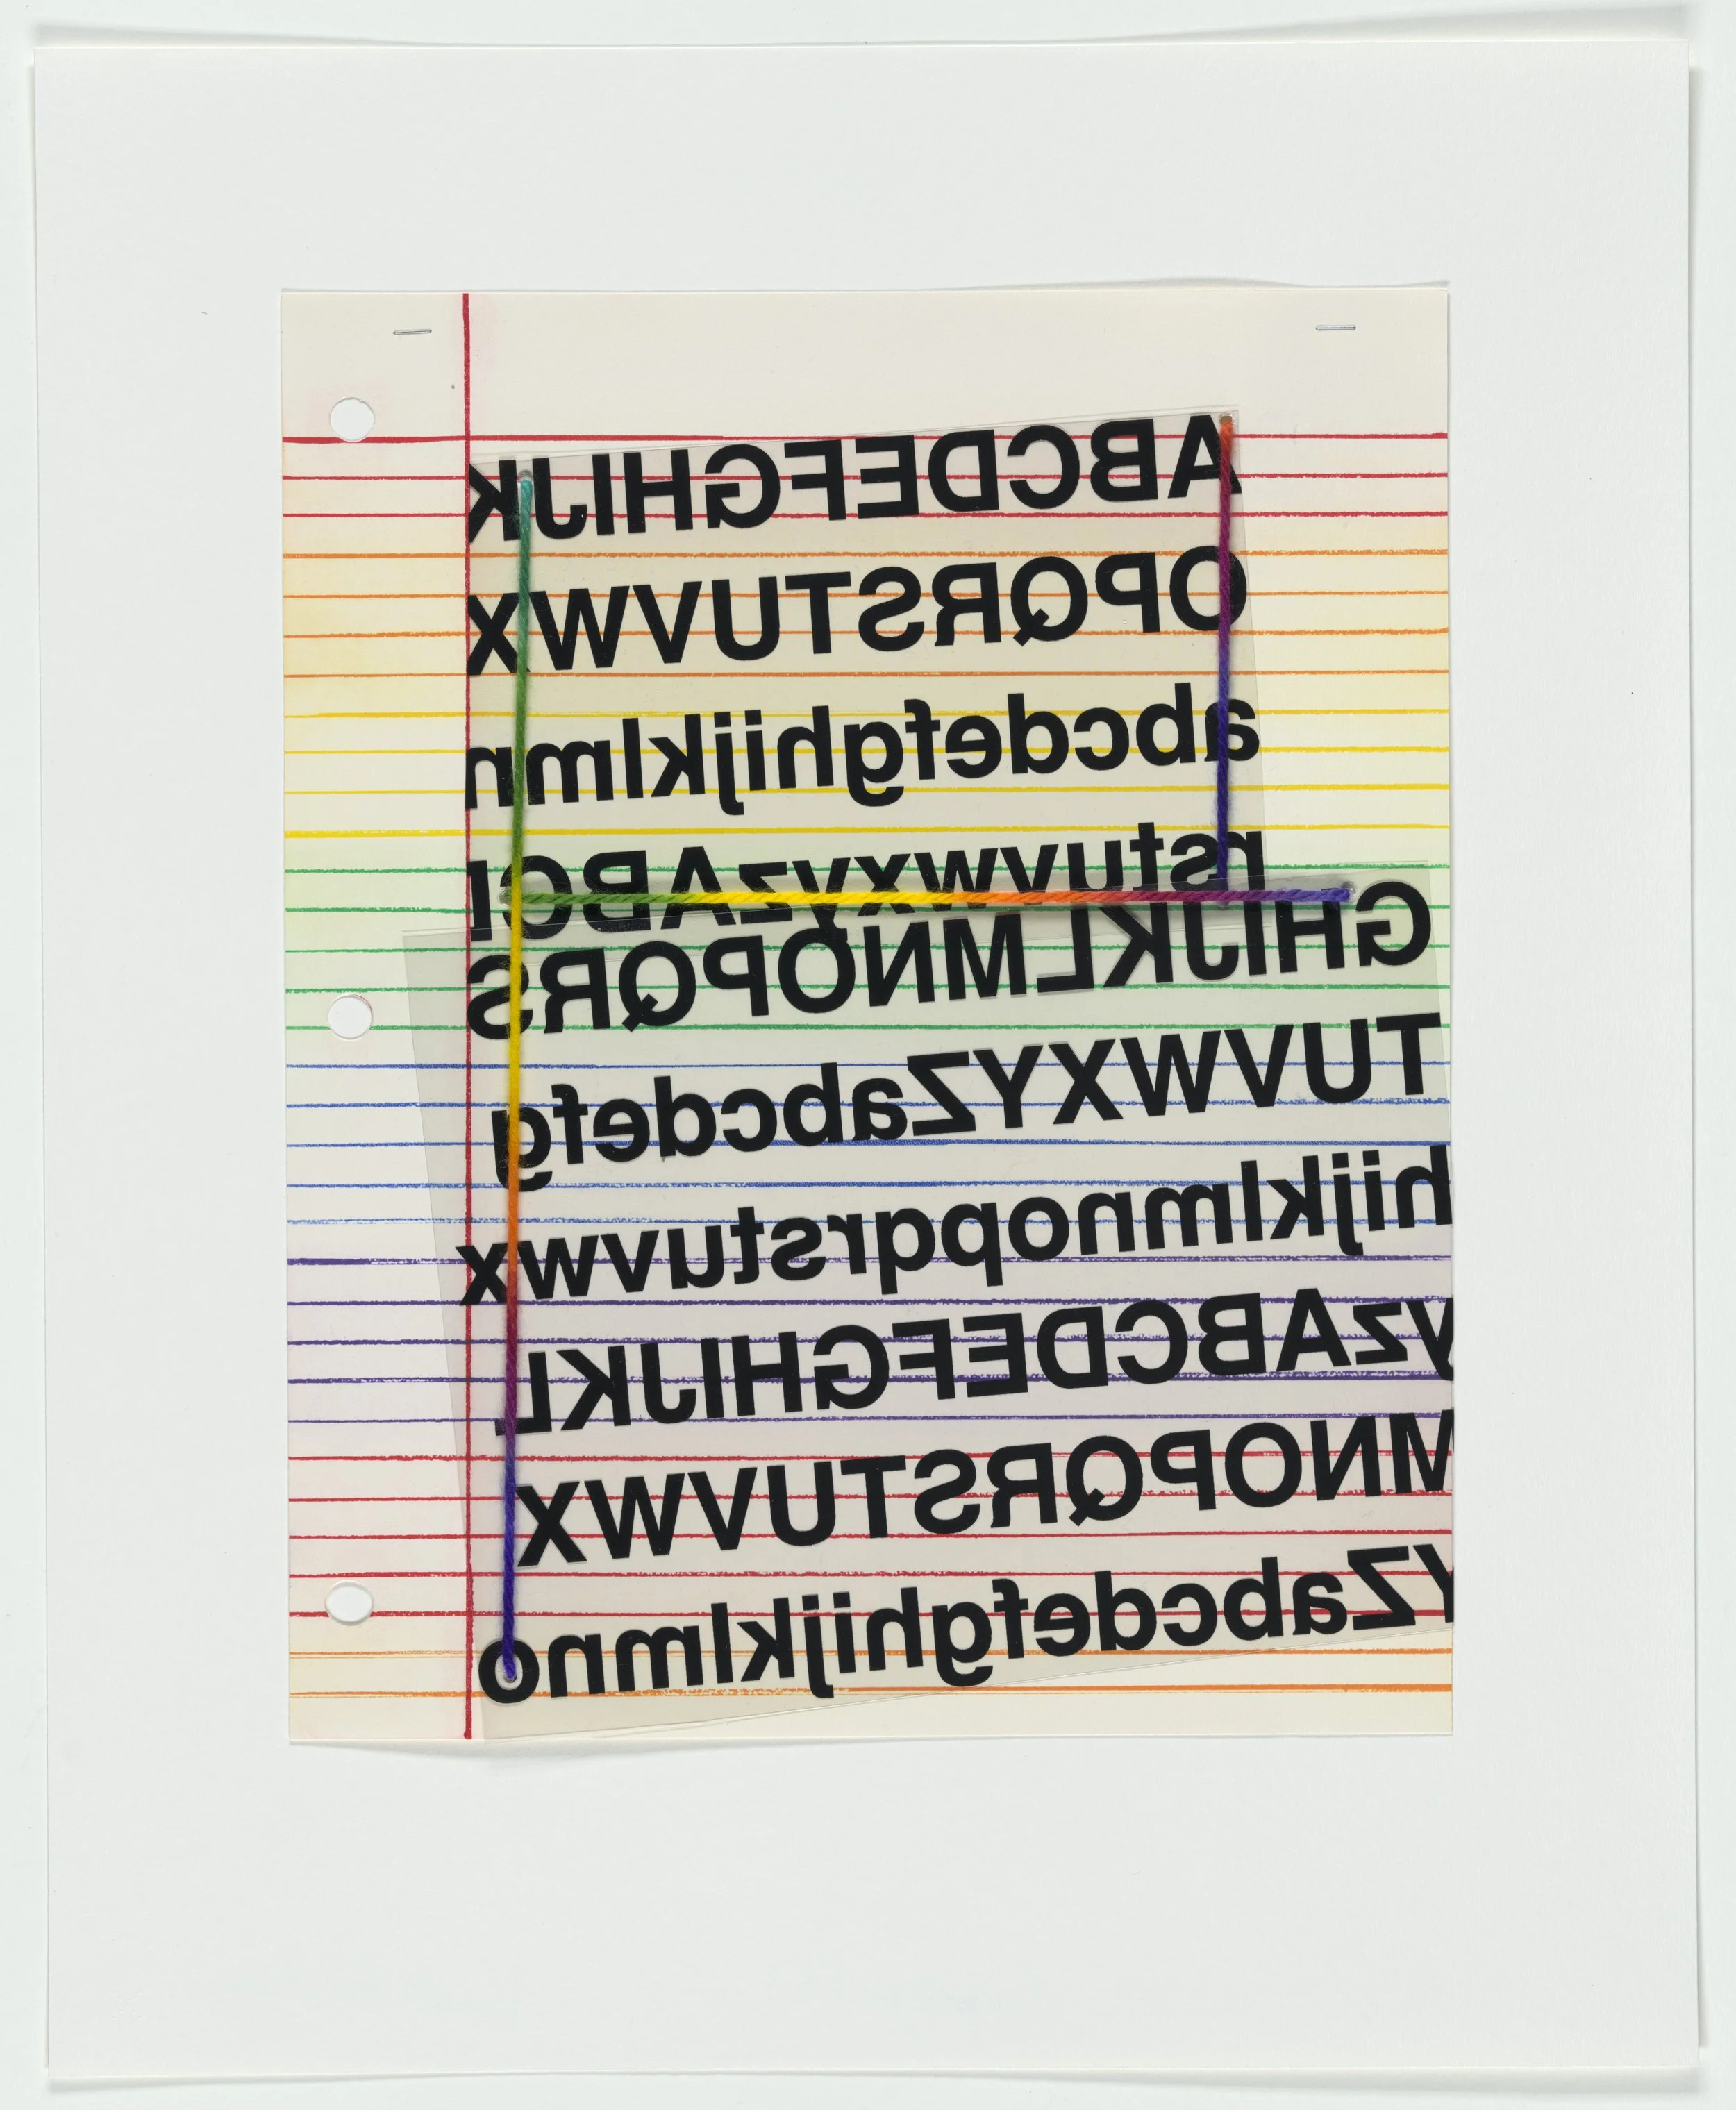 ABCDEFGHIJK
OPQRSTUVWX
abcdefghijklmn
rstuvwxyzABCD
GHIJKLMNOPQRS
TUVWXYZabcdefg
hijklmnopqrstuvwx
yzABCDEFGHIJKL
MNOPQRSTUVWX
YZabcdefghijklmno